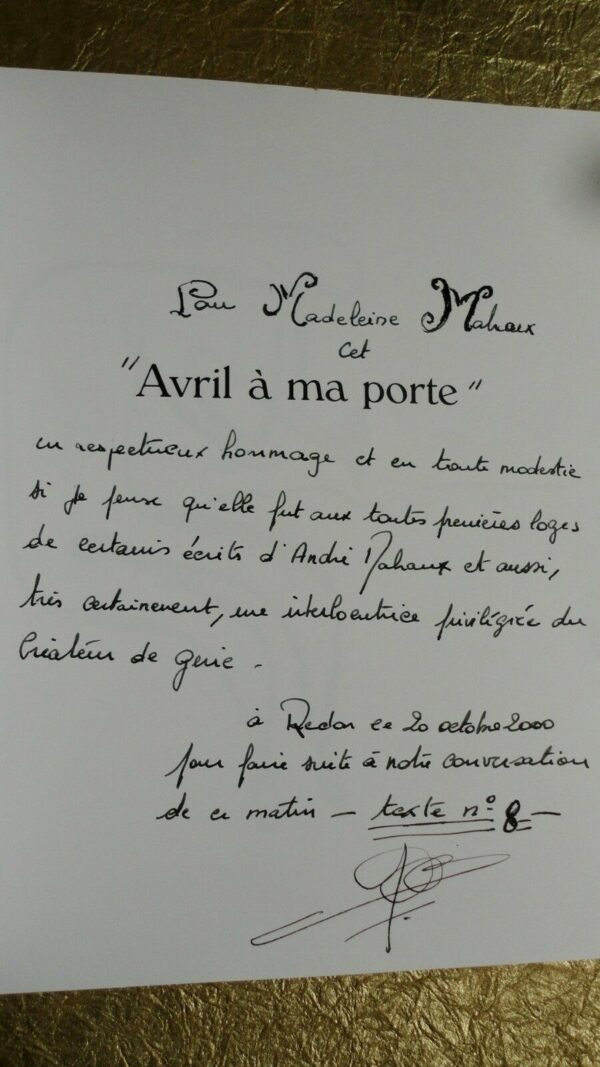 Pour Madeleine Mahaux
Cet
"Avril à ma porte"
en respectueux hommage et en toute modestie
si je pense qu'elle fut aux toutes premières loges
de certains écrits d'André Mahaux et aussi,
très certainement, une interlocutrice privilégiée du
Créateur de génie -
à Redon ce 20 octobre 2000
pour faire suite à notre conversation
de ce matin - texte n° 8 -